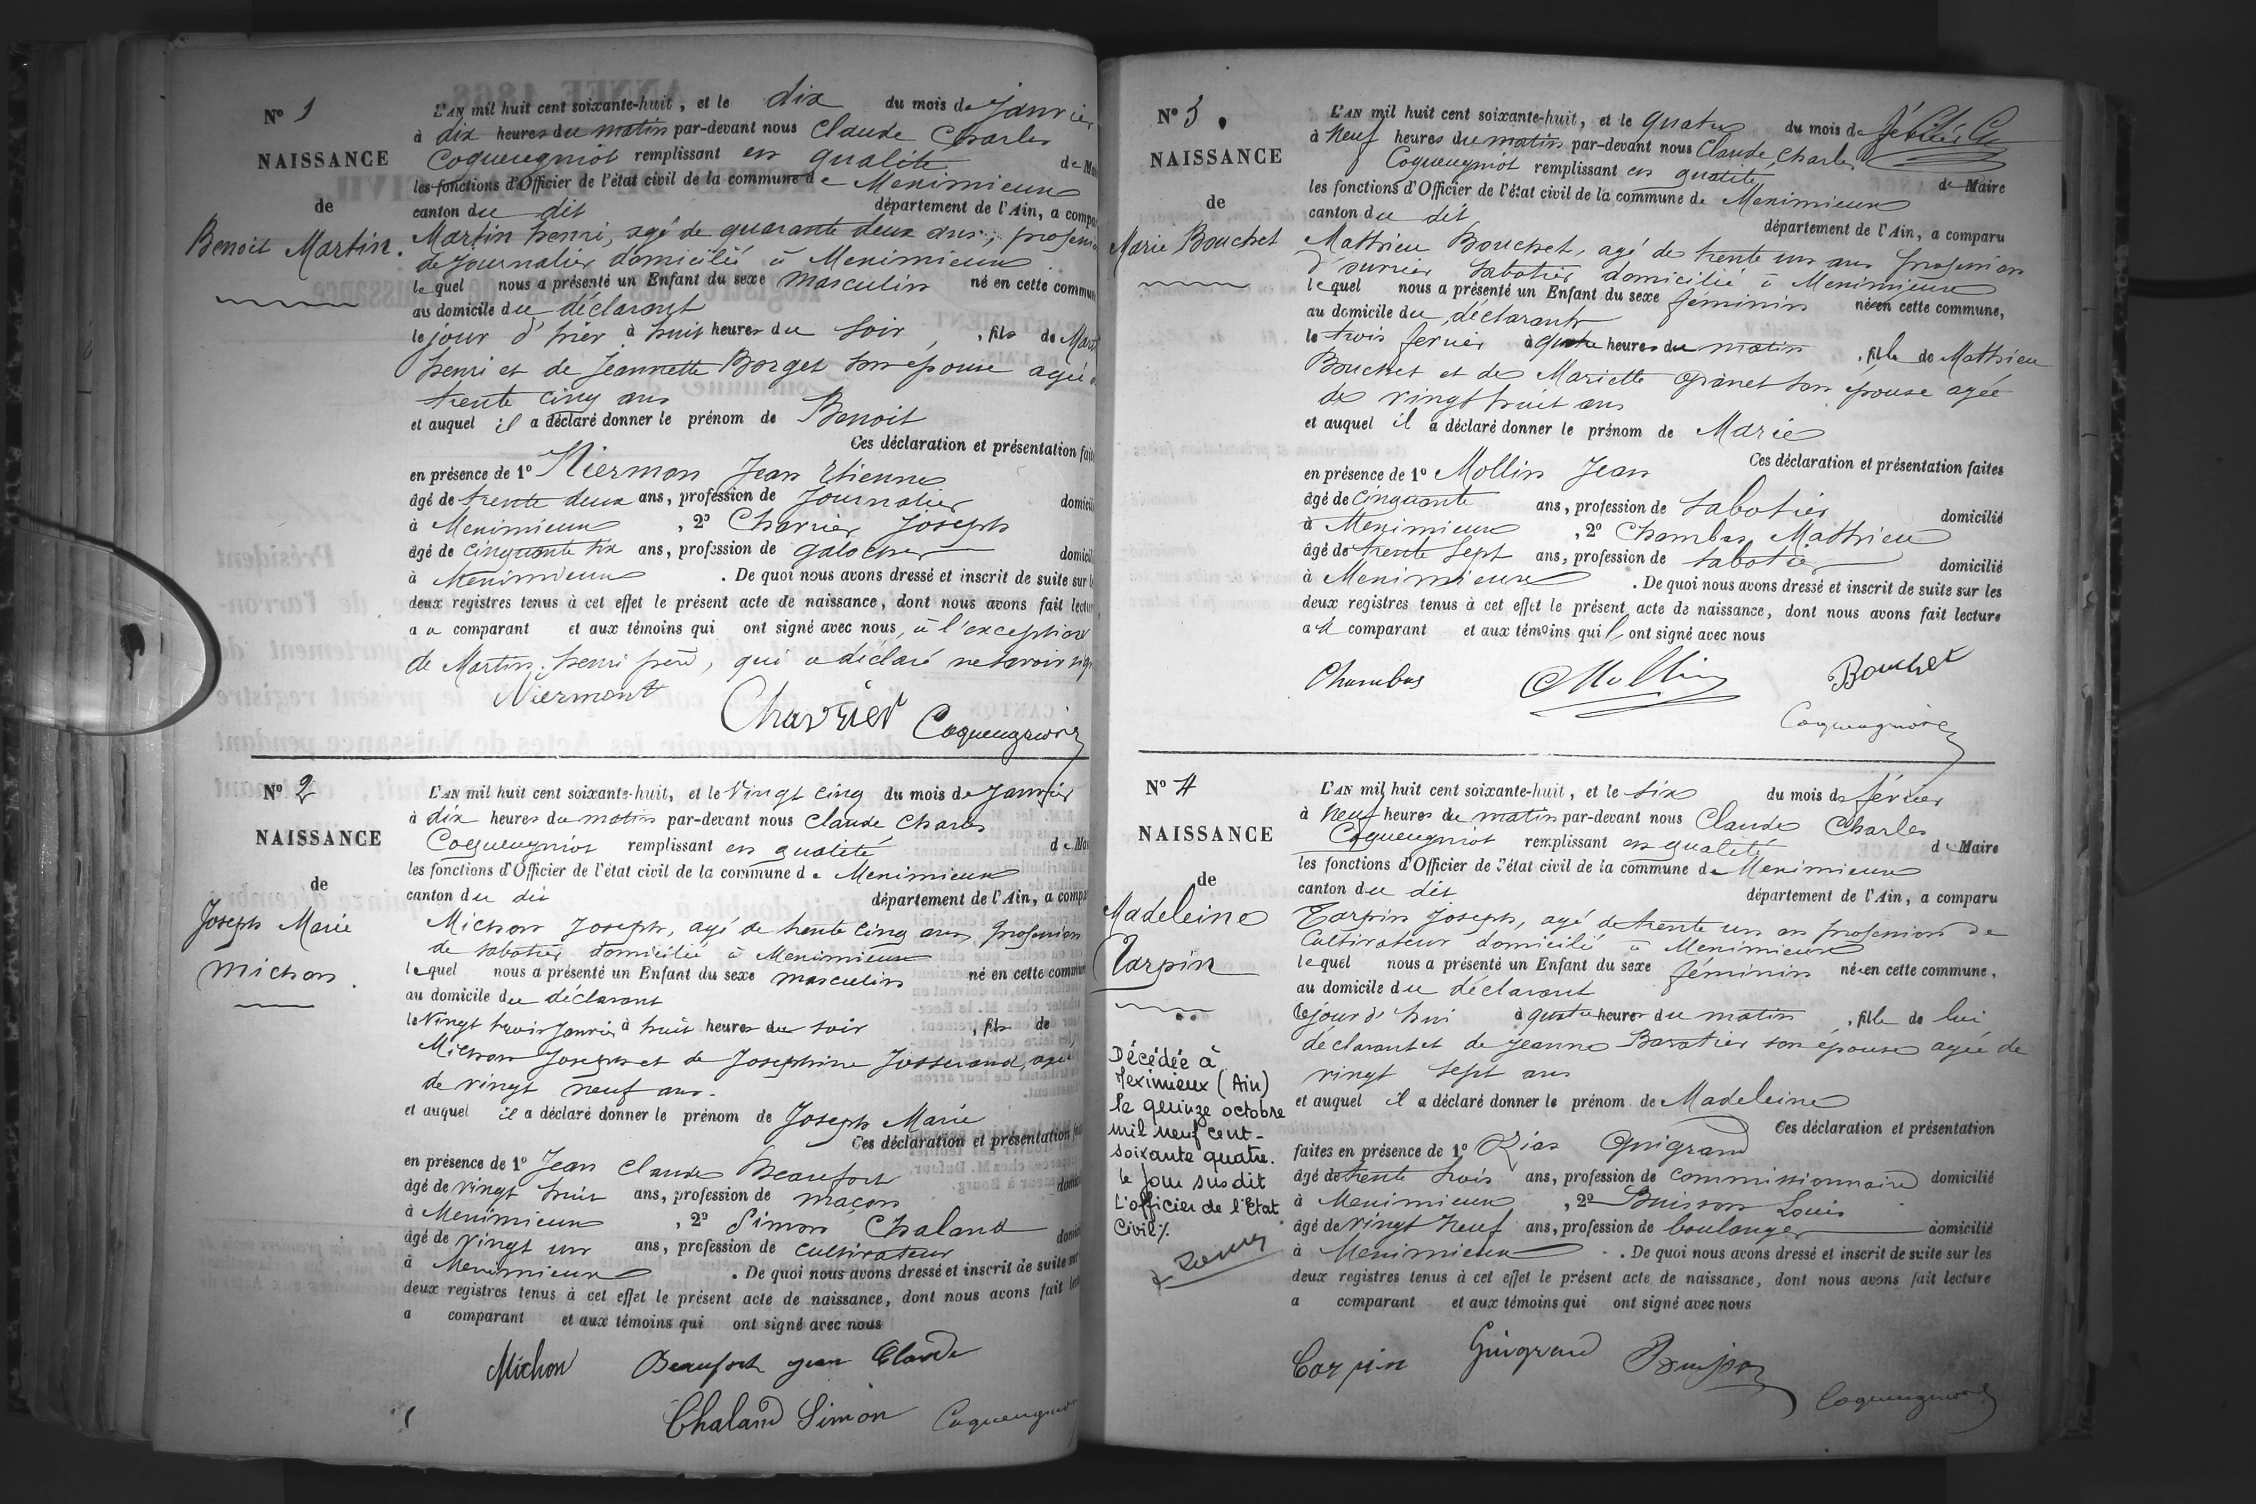 Nº 1
NAISSANCE
de
Benoit Martin.
L'AN mil huit cent soixante-huit, et le dix du mois de Janvier
à dix heures du matin par-devant nous Claude Charles
Coqueugniot remplissant en qualité de
les fonctions d'Officier de l'état civil de la commune de Meximieux
canton du dit département de l'Ain, a
Martin henri, agé de quarante deux ans, profession
de Journalier domicilié à Meximieux
lequel nous a présenté un Enfant du sexe masculin né en cette
au domicile du déclarant
le jour d'hier à huit heures du soir, fils de
henri et de Jeannette Borget son épouse agée
trente cinq ans
et auquel il a déclaré donner le prénom de Benoit
Ces déclaration et présentation
en présence de 1º Niermon Jean Etienne
âgé de trente deux ans, profession de Journalier
à Meximieux, 2º Charrier Joseph
âgé de cinquante six ans, profession de galocher
à Meximieux. De quoi nous avons dressé et inscrit de suite sur
deux registres tenus à cet effet le présent acte de naissance, dont nous avons fait
a u comparant et aux témoins qui ont signé avec nous, à l'exception
de Martin henri père, qui a déclaré ne savoir
Niermont
Charrier Coqueugniot
Nº 2
NAISSANCE
de
Joseph Marie
Michon.
L'AN mil huit cent soixante-huit, et le Vingt cinq du mois de Janvier
à dix heures du matin par-devant nous Claude Charles
Coqueugniot remplissant en qualité de
les fonctions d'Officier de l'état civil de la commune de Meximieux
canton du dit département de l'Ain, a
Michon Joseph, agé de trente cinq ans, profession
de sabotier domicilié à Meximieux
lequel nous a présenté un Enfant du sexe masculin né en cette
au domicile du déclarant
le Vingt trois Janvier à huit heures du soir, fils de
Michon Joseph et de Josephine Josserand,
de vingt neuf ans.
et auquel il a déclaré donner le prénom de Joseph Marie
Ces déclaration et présentation
en présence de 1º Jean Claude Beaufort
âgé de vingt huit ans, profession de maçon
à Meximieux, 2º Simon Chaland
âgé de vingt un ans, profession de cultivateur
à Meximieux. De quoi nous avons dressé et inscrit de suite sur
deux registres tenus à cet effet le présent acte de naissance, dont nous avons fait
a comparant et aux témoins qui ont signé avec nous
Michon Beaufort jean Claude
Chaland Simon Coqueugniot
Nº 3
NAISSANCE
de
Marie Bouchet
L'AN mil huit cent soixante-huit, et le quatre du mois de
à Neuf heures du matin par-devant nous Claude Charles
Coqueugniot remplissant en qualité de Maire
les fonctions d'Officier de l'état civil de la commune de Meximieux
canton du dit
département de l'Ain, a comparu
Mathieu Bouchet, agé de trente un ans profession
d'ouvrier sabotier domicilié à Meximieux
lequel nous a présenté un Enfant du sexe féminin née en cette commune,
au domicile du déclarant
le trois fevrier à quatre heures du matin, fille de Mathieu
Bouchet et de Mariette Granet son épouse agée
de vingt huit ans
et auquel il a déclaré donner le prénom de Marie
Ces déclaration et présentation faites
en présence de 1º Mollin Jean
âgé de cinquante ans, profession de sabotier domicilié
à Meximieux, 2º Chambas Mathieu
âgé de trente sept ans, profession de sabotier domicilié
à Meximieux. De quoi nous avons dressé et inscrit de suite sur les
deux registres tenus à cet effet le présent acte de naissance, dont nous avons fait lecture
a comparant et aux témoins qui ont signé avec nous
Chambas Mollin Bouchet
Coqueugniot
Nº 4
NAISSANCE
de
Madeleine
Tarpin
Décédée à
Meximieux (Ain)
le quinze octobre
mil neuf cent-
soixante quatre.
le jour susdit
L'officier de l'Etat
Civil%
L'AN mil huit cent soixante-huit, et le six du mois de février
à Neuf heures du matin par-devant nous Claude Charles
Coqueugniot remplissant en qualité de Maire
les fonctions d'Officier de l'état civil de la commune de Meximieux
canton du dit département de l'Ain, a comparu
Tarpin Joseph, agé de trente un an profession de
Cultivateur domicilié à Meximieux
lequel nous a présenté un Enfant du sexe féminin née en cette commune,
au domicile du déclarant
le jour d'hui à quatre heures du matin, fille de lui
déclarant et de Jeanne Baratier son épouse agée de
vingt sept ans
et auquel il a déclaré donner le prénom de Madeleine
Ces déclaration et présentation
faites en présence de 1º Guigrand
âgé de trente trois ans, profession de commissionnaire domicilié
à Meximieux, 2º Buisson Louis
âgé de vingt neuf ans, profession de boulanger domicilié
à Meximieux. De quoi nous avons dressé et inscrit de suite sur les
deux registres tenus à cet effet le présent acte de naissance, dont nous avons fait lecture
a comparant et aux témoins qui ont signé avec nous
Tarpin Guigrand Buisson
Coqueugniot